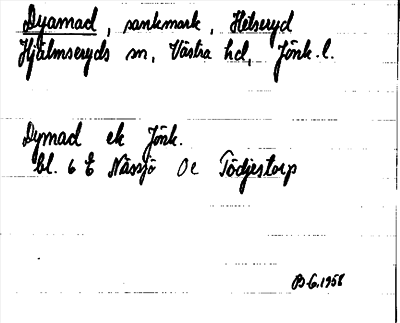 Dyamad, sankmark, Helseryd
Hjälmseryds sn, Västra hd, Jönk. l.
Dymad ek Jönk.
bl. 6 E Nässjö Oc Tödjestorp
B.G. 1958